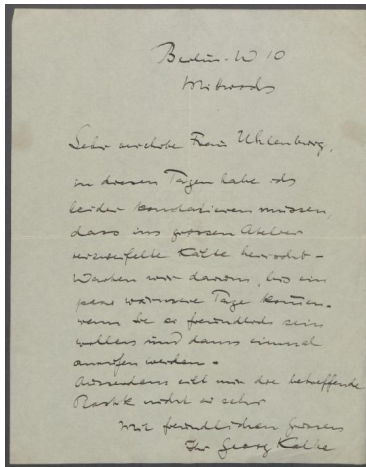 Berlin. W 10
Mittwochs
Sehr verehrte Frau Uhlenburg,
in diesen Tagen habe ich
leider konstatieren müssen,
dass im grossen Atelier
verzweifelte Kälte herrscht –
Warten wir darum, bis ein
paar wärmere Tage kommen.
wenn Sie so freundlich sein
wollen und dann einmal
anrufen werden.
Ausserdem eilt mir die betreffende
nicht so sehr
Mit freundlichen Grüssen
Ihr Georg Kolbe